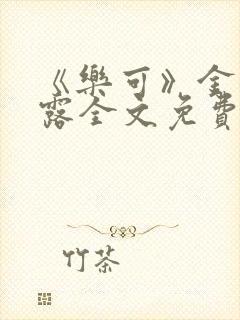 《樂可》金
露全文免費
竹茶